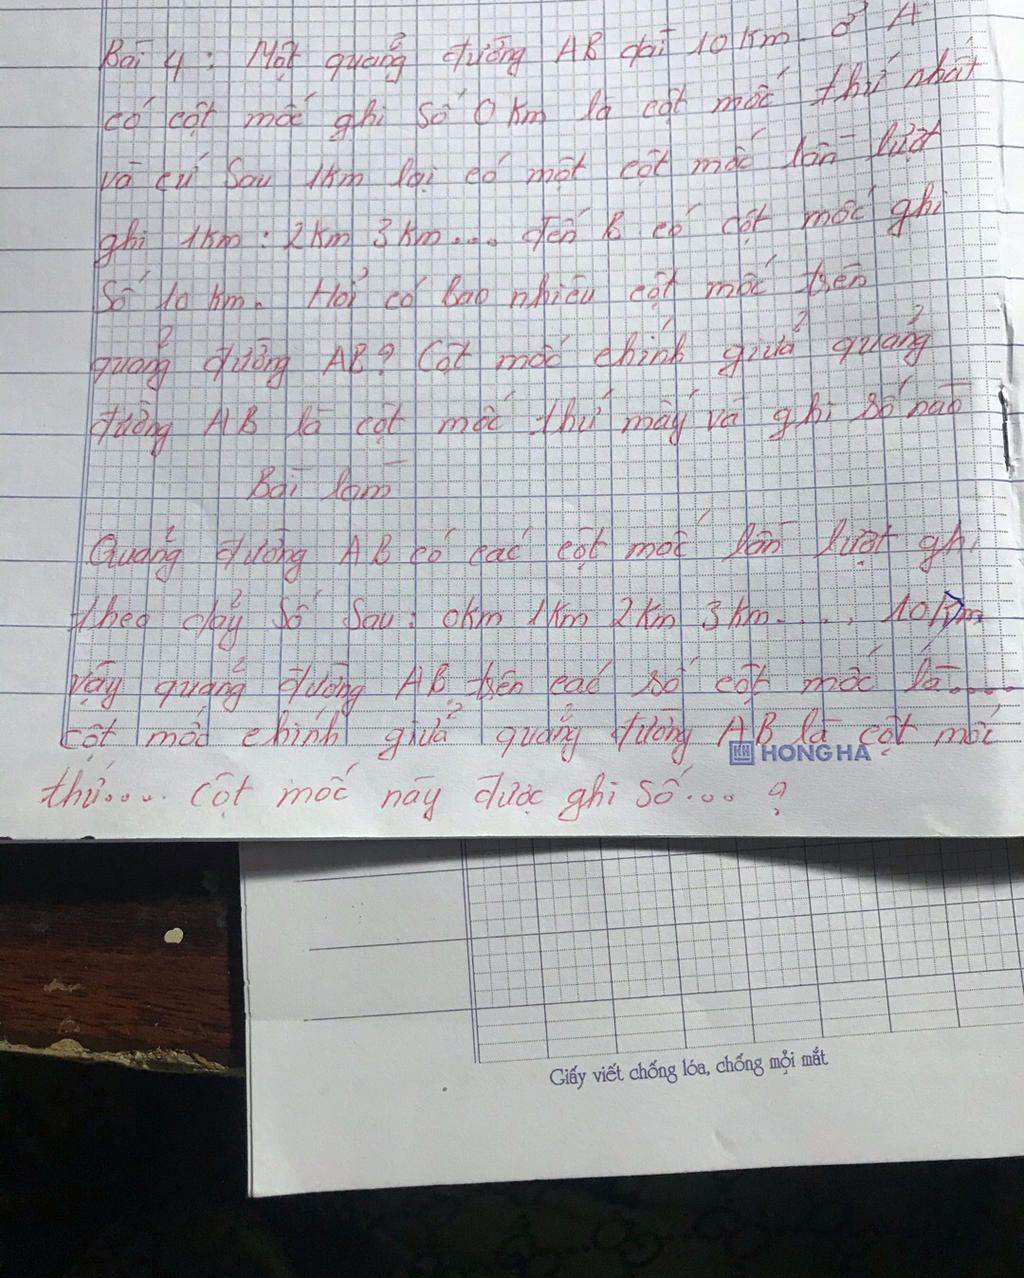 Bài 4: Một quảng đường AB dài 10 km. ở A
có cột mốc ghi số 0 km là cột mốc thứ nhất
và cứ sau 1km lại có một cột mốc lần lượt
ghi 1km: 2km 3km.... đến B có cột mốc ghi
số 10 km. Hỏi có bao nhiêu cột mốc trên
quảng đường AB? Cột mốc chính giửa quảng
đường AB là cột mốc thứ mấy và ghi số nào
Bài làm
Quảng đường AB có các cột mốc lần lượt ghi
theo dảy số sau: 0km 1km 2km 3km..... 10km
vậy quảng đường AB trên các số cột mốc là.....
cột mốc chính giửa quảng đường AB là cột mốc
HONG HA
thứ.... cột mốc này được ghi số.... ?
Giấy viết chống lóa, chống mỏi mắt